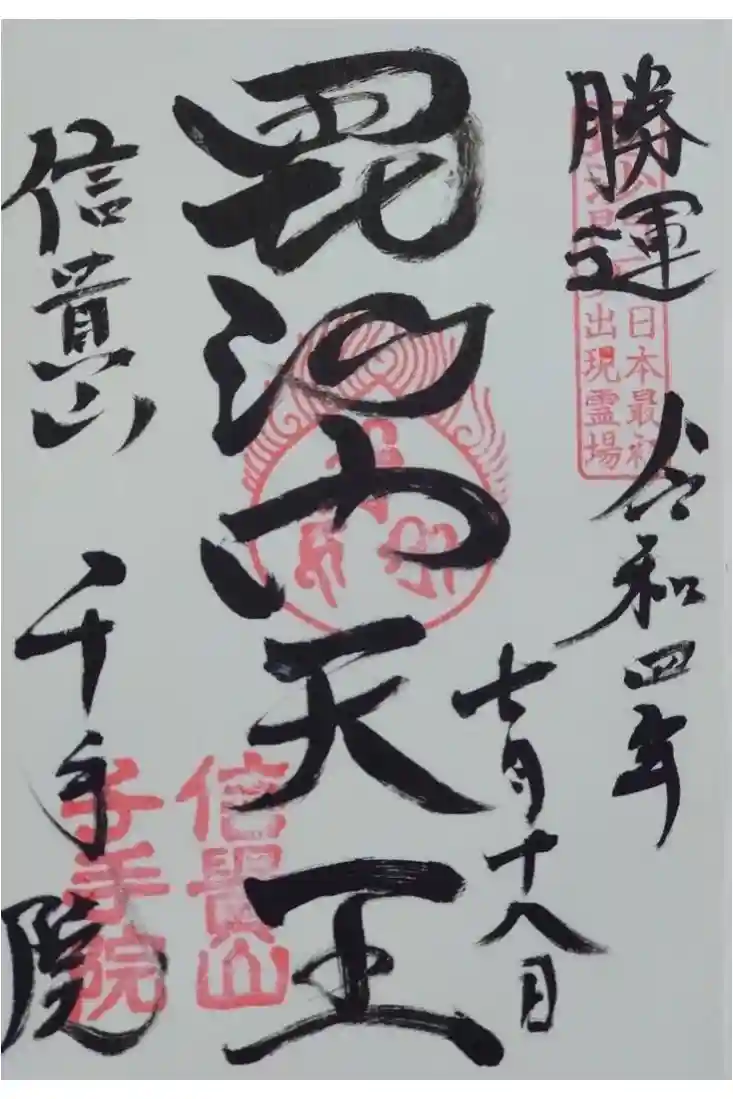 勝運
令和四年
七月十八日
毘沙門天王
信貴山
千手院
日本最初
出現霊場
信貴山
千手院